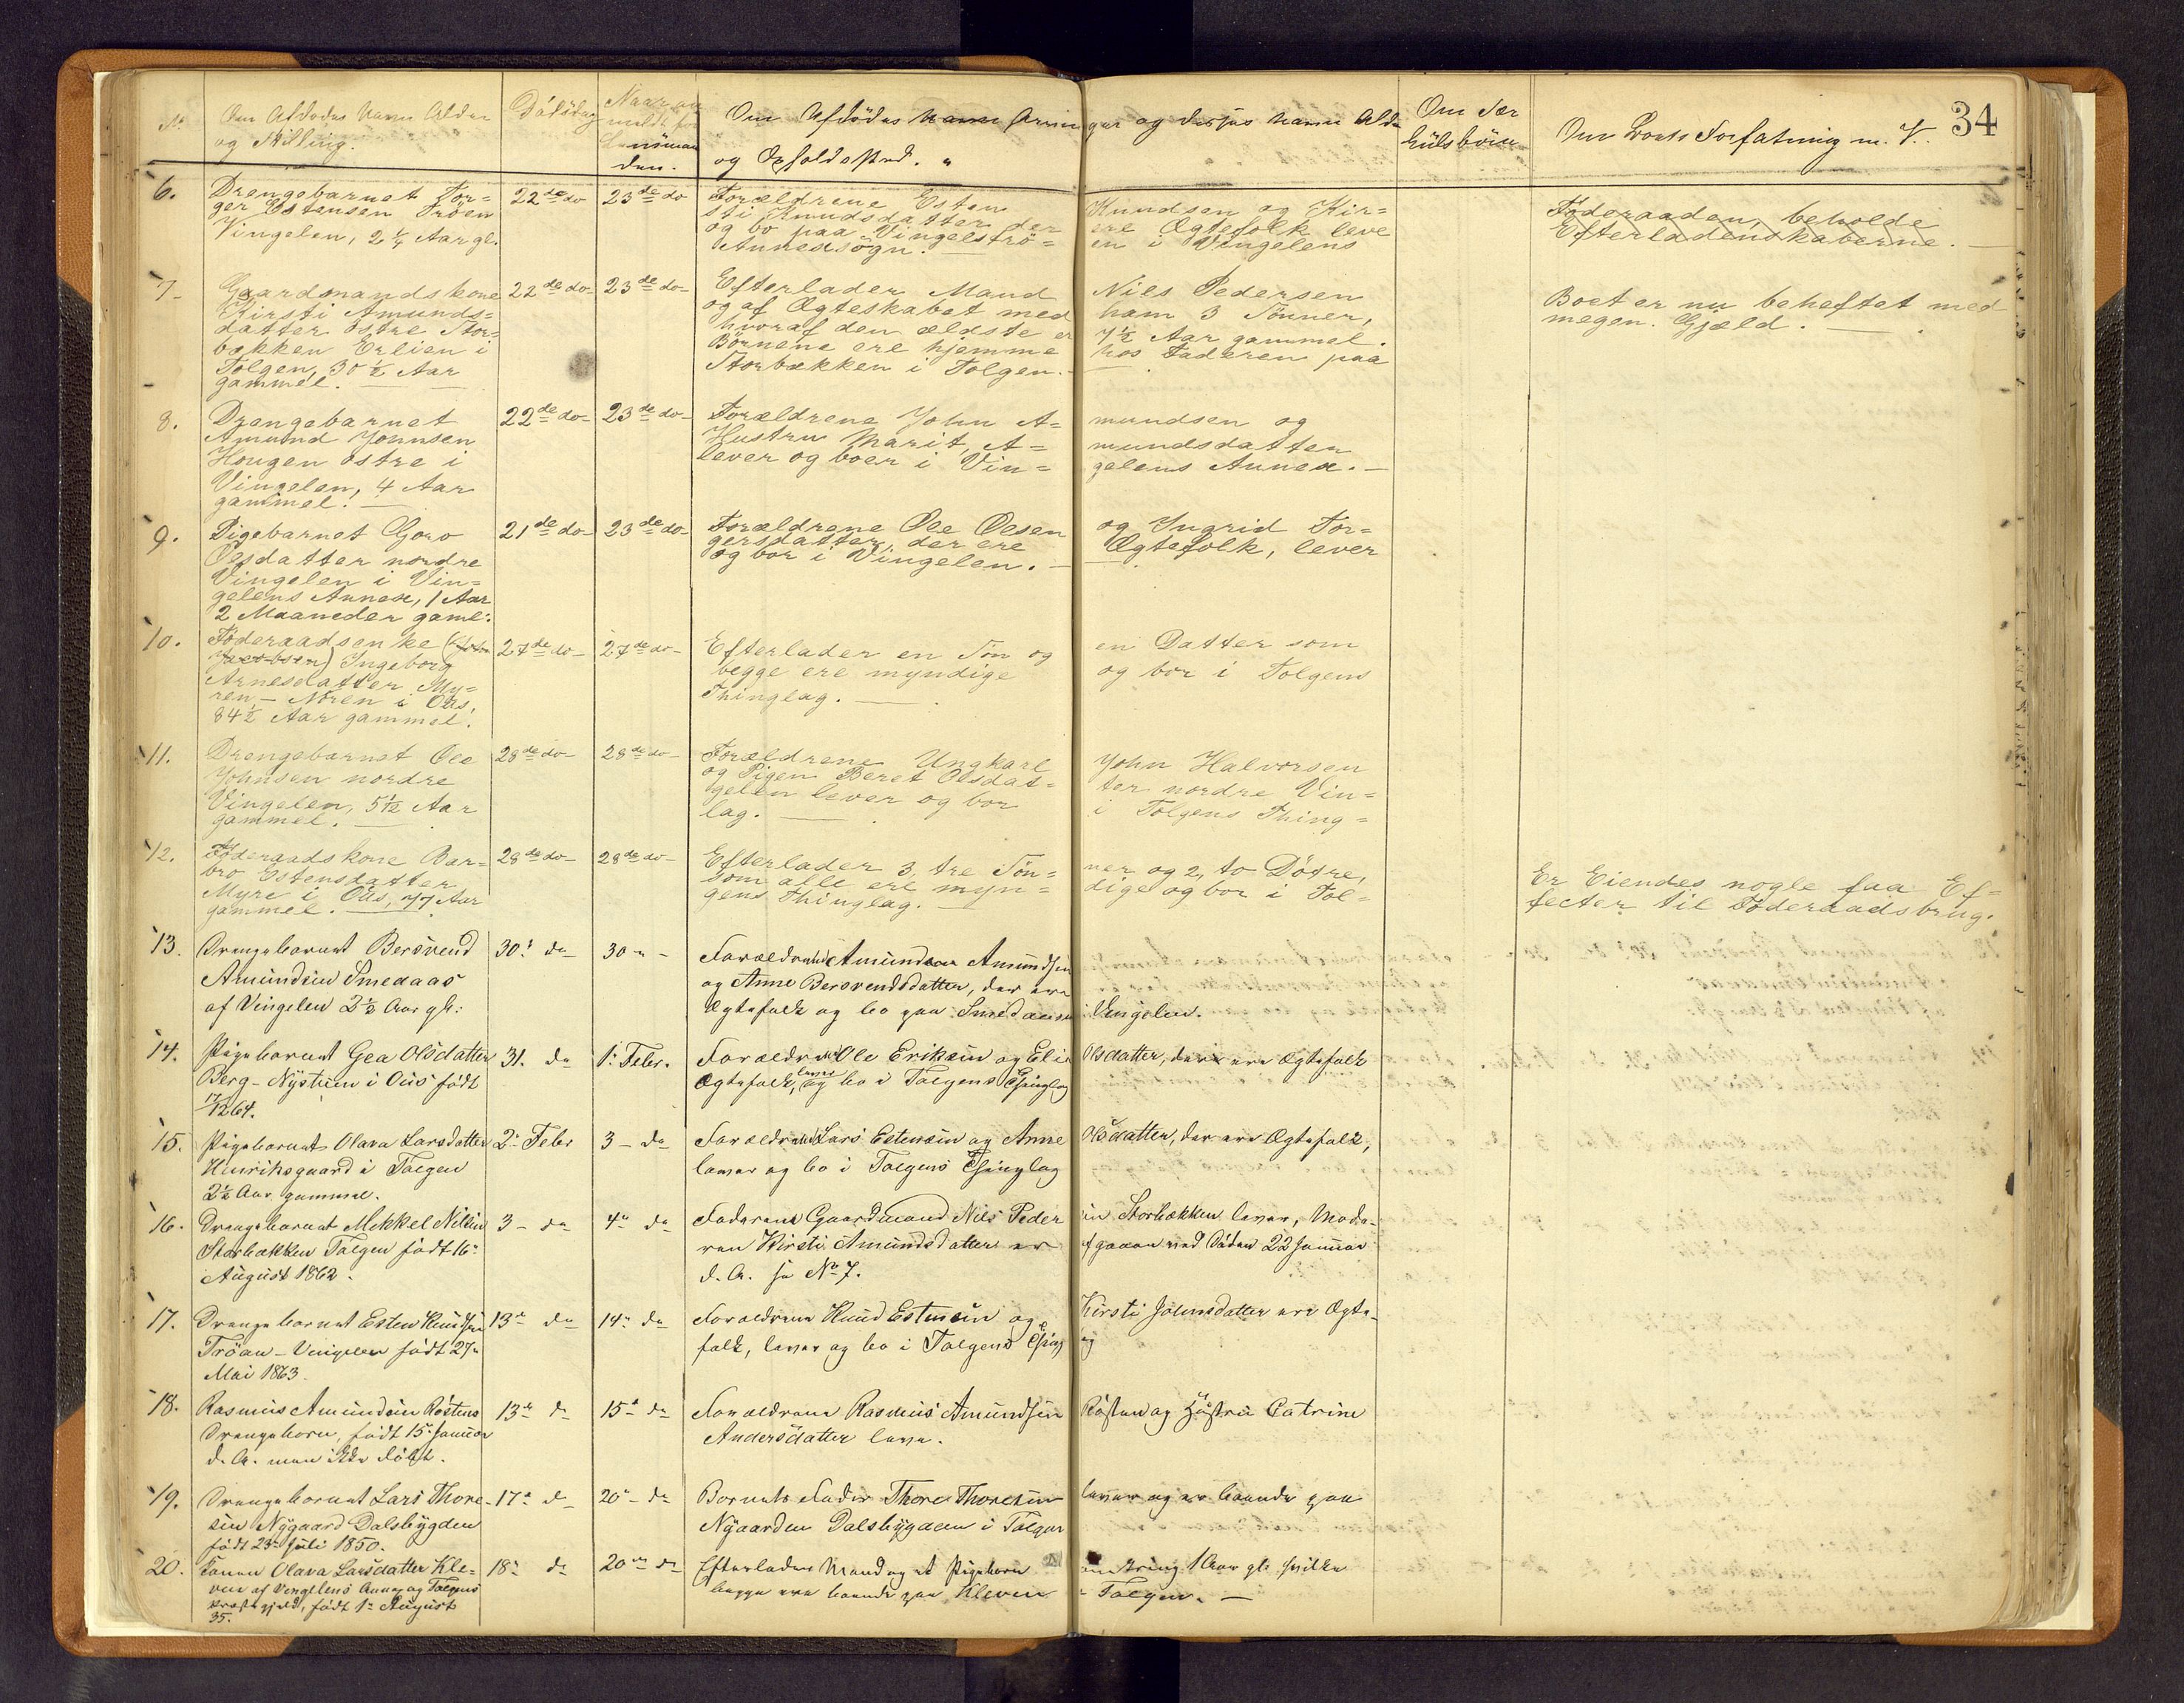 34
No. Om Afdødes Navn Alder
og Stilling.
Dødsdag
Naar anmeldt for
Lensmanden.
Om Afdødes Navn Arvinger og disses Navn Alder
og Opholdssted.
Om Særkulsbørn
Om Boets Forfatning m. V.
6. Drengebarnet Tor=
ger Estensen Tröen
Vingelen, 2 1/4 Aar gl.
22de do 23de do
Forældrene Esten Knudsen og Kir=
sti Knudsdatter der ere Ægtefolk leve
og bo paa Vingelströ= en i Vingelens
Annexsogn.
Föderaaden, beholde
Efterladenskaberne.
7. Gaardmandskone
Kirsti Amunds=
datter östre Stor=
bækken Erlien i
Tolgen, 30 1/2 Aar
gammel.
22de do 23de do
Efterlader Mand Nils Pedersen
og af Ægteskabet med ham 3 Sönner,
hvoraf den ældste er 7 1/2 Aar gammel.
Börnene ere hjemme hos Faderen paa
Storbækken i Tolgen.
Boet er nu beheftet med
megen Gjæld.
8. Drengebarnet
Amund Johnsen
Hougen östre i
Vingelen, 4 Aar
gammel.
22de do 23de do
Forældrene John A= mundsen og
Hustru Marit, A= mundsdatter
lever og boer i Vin= gelens Annex.
9. Pigebarnet Goro
Olsdatter nordre
Vingelen i Vin=
gelens Annex, 1 Aar
2 Maaneder gaml.
21de do 23de do
Forældrene Ole Olsen og Ingrid Tor=
gersdatter, der ere Ægtefolk, lever
og bor i Vingelen.
10. Föderaadsenke
Jacobsen) Ingeborg
Arnesdatter My=
ren - Noren i Öus,
84 1/2 Aar gammel.
27de do 27de do
Efterlader en Sön og en Datter som
begge ere myndige og bor i Tolgens
Thinglag.
11. Drengebarnet Ole
Johnsen nordre
Vingelen, 5 1/12 Aar
gammel.
28de do 28de do
Forældrene Ungkarl John Halvorsen
og Pigen Beret Olsdat= ter nordre Vin=
gelen lever og bor i Tolgens Thing=
lag.
12. Föderaadskone Bar=
bro Estensdatter
Myre i Öus, 77 Aar
gammel.
28de do 28de do
Efterlader 3, tre Sön= ner og 2, to Döttre,
som alle ere myn= dige og bor i Tol=
gens Thinglag.
Er Eiendes nogle faa Ef=
fecter til Föderaadsbrug.
13. Drengebarnet Bersvend
Amundsen Smedaas
af Vingelen 2 1/2 Aar gl:
30. do 30 -
Forældrene Amund Amundsen
og Anne Bersvendsdatter, der ere
Ægtefolk og bo paa Smedaasen i Vingelen.
14. Pigebarnet Gea Olsdatter
Berg-Nystuen i Öus födt
17/12 64.
31. do 1. Febr.
Forældrene Ole Eriksen og Eli Olsdatter, der ere Ægtefolk
Ægtefolk, lever og bo i Tolgens Thinglag
15. Pigebarnet Olava Larsdatter
Henriksgaard i Tolgen
2 1/2 Aar gammel.
2. Febr 3 - do
Forældrene Lars Estensen og Anne Olsdatter, der ere Ægtefolk,
lever og bo i Tolgens Thinglag
16. Drengebarnet Mikkel Nilsen
Storbækken Tolgen födt 16.
August 1862.
3 - do 4 do
Faderen Gaardmand Nils Peder sen Storbækken lever, Mode-
ren Kirsti Amundsdatter er afgaaen ved Döden 22 Januar
d. A. se No 7.
17. Drengebarnet Esten Knudsen
Tröan - Vingelen födt 27.
Mai 1863.
13. do 14. do
Forældrene Knud Estensen og Kirsti Johnsdatter ere Ægte-
folk, lever og bo i Tolgens Thinglag
18. Rasmus Amundsen Röstens
Drengebarn, födt 15. Januar
d. A. men ikke döbt.
13. do 15. do
Forældrene Rasmus Amundsen Rösten og Hustru Catrine
Andersdatter leve.
19. Drengebarnet Lars Thore-
sen Nygaard Dalsbygden
födt 23. Juli 1850.
17. do 20. do
Barnets Fader Thore Thoresen lever og er boende paa
Nygaarden Dalsbygden i Tolgen
20. Konen Olava Larsdatter Kle=
ven af Vingelens Annex og Tolgens
Præstegjeld, födt 1. August
35.
18. do 20. do
Efterlader Mand og et Pigebarn omkring 1 Aar gl. hvilke
begge ere boende paa Kleven i Tolgen.